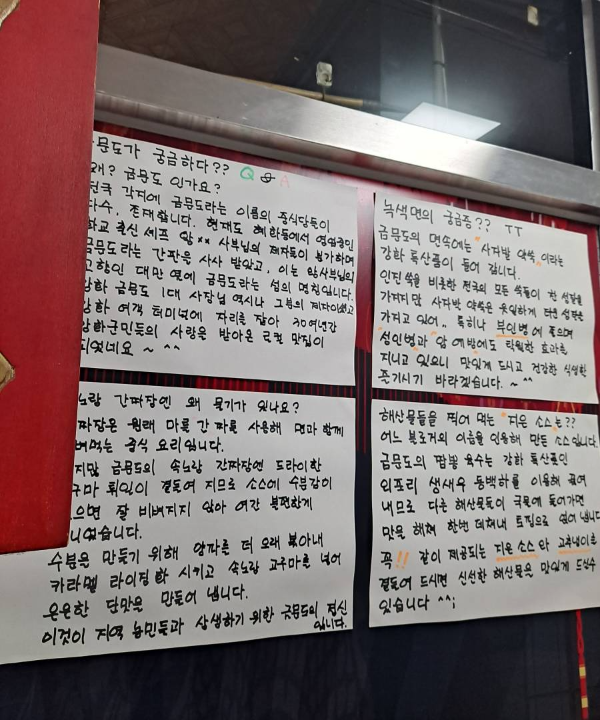 금문도가 궁금하다?? Q & A
왜? 금문도 인가요?
전국 각지에 금문도라는 이름의 중식당들이
다수, 존재합니다. 현재도 혜화동에서 영업중인
화교 출신 셰프 왕** 사부님의 제자들이 불가하며
금문도라는 간판을 사사 받았고, 이는 왕사부님의
고향인 대만 옆에 금문도라는 섬의 명칭입니다.
강화 금문도 1대 사장님 역시나 그분의 제자이셨고
강화 여객 터미널에 자리를 잡아 30여년간
강화군민들의 사랑을 받아온 로컬 맛집이
되었네요 ~ ^^
속노랑 간짜장엔 왜 물기가 있나요?
짜장은 원래 마를 간 짜를 사용해 면과 함께
비벼먹는 중식 요리입니다.
하지만 금문도의 속노랑 간짜장엔 드라이한
고구마 튀김이 곁들여 지므로 소스에 수분감이
없으면 잘 비벼지지 않아 여간 불편한게
아니었습니다.
수분을 만들기 위해 양파를 더 오래 볶아내
카라멜 라이징화 시키고 속노랑 고구마를 넣어
은은한 단맛을 만들어 냅니다.
이것이 지역 농민들과 상생하기 위한 금문도의 정신
입니다.
녹색면의 궁금증?? ㅜㅜ
금문도의 면속에는 "사자발 약쑥"이라는
강화 특산품이 들어 갑니다.
인진쑥을 비롯한 전국의 모든 쑥들이 찬 성질을
가져지만 사자발 약쑥은 유일하게 더운 성질을
가지고 있어.. 특히나 부인병에 좋으며
성인병과 암 예방에도 탁월한 효과를
지니고 있으니 맛있게 드시고 건강한 식생활
즐기시기 바라겠습니다. ~ ^^
해산물들을 찍어 먹는 "지온 소스"는??
어느 블로거의 이름을 인용해 만든 소스입니다.
금문도의 짬뽕 육수는 강화 특산품인
외포리 생새우 동백하를 이용해 끓여
내므로 다른 해산물들이 국물에 들어가면
맛을 해쳐 한번 데쳐내 토핑으로 얹어 냅니다
꼭!! 같이 제공되는 지온소스와 고추냉이를
곁들여 드시면 신선한 해산물을 맛있게 드실수
있습니다 ^^;